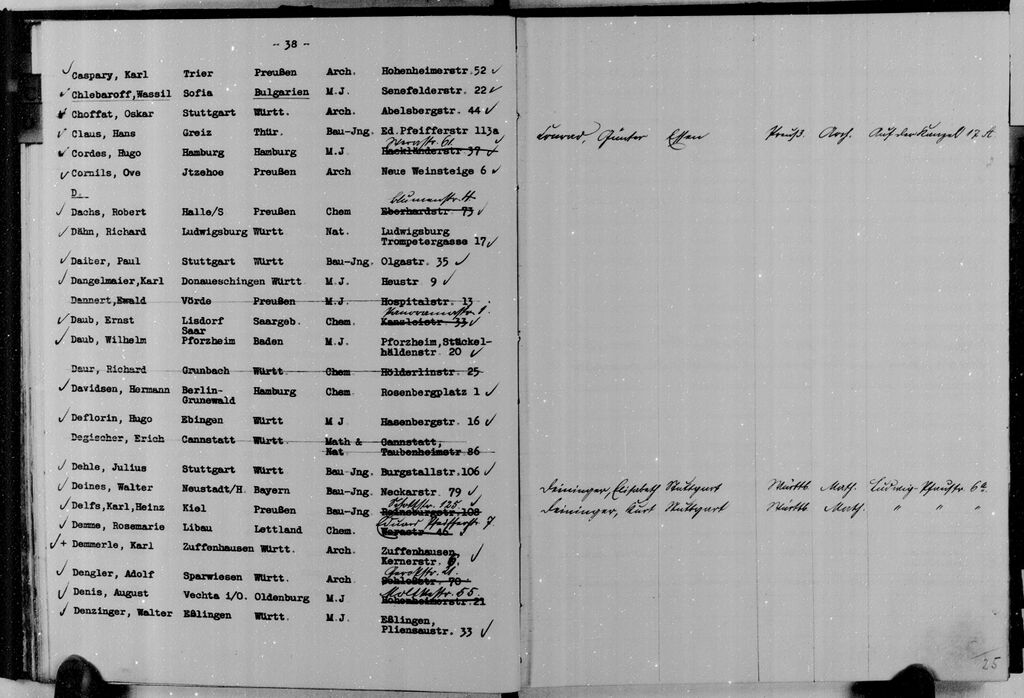 - 38 -
Caspary, Karl Trier Preußen Arch. Hohenheimerstr.52
Chlebaroff,Wassil Sofia Bulgarien M.J. Senefelderstr. 22
Choffat, Oskar Stuttgart Württ. Arch. Abelsbergstr. 44
Claus, Hans Greiz Thür. Bau-Jng. Ed.Pfeifferstr 113a
Cordes, Hugo Hamburg Hamburg M.J. Hackländerstr 37
Cornils, Ove Jtzehoe Preußen Arch Neue Weinsteige 6
D.
Blumenstr.
Dachs, Robert Halle/S Preußen Chem Eberhardstr 73
Dähn, Richard Ludwigsburg Württ Nat. Ludwigsburg
Trompetergasse 17
Daiber, Paul Stuttgart Württ Bau-Jng. Olgastr. 35
Dangelmaier,Karl Donaueschingen Württ M.J. Heustr 9
Dannert,Ewald Vörde Preußen M.J. Hospitalstr. 13
Panoramastr 1.
Daub, Ernst Lisdorf Saargeb. Chem. Kanzleistr 33
Saar
Daub, Wilhelm Pforzheim Baden M.J. Pforzheim,Stückel-
häldenstr 20
Daur, Richard Grunbach Württ Chem Hölderlinstr. 25
Davidsen, Hermann Berlin- Hamburg Chem. Rosenbergplatz 1
Grunewald
Deflorin, Hugo Ebingen Württ M J Hasenbergstr. 16
Degischer, Erich Cannstatt Württ. Math & Cannstatt,
Nat Taubenheimstr 86
Dehle, Julius Stuttgart Württ Bau-Jng. Burgstallstr.106
Deines, Walter Neustadt/H. Bayern Bau-Jng. Neckarstr. 79
Delfs,Karl,Heinz Kiel Preußen Bau-Jng Reinsburgstr.108
Eduard Pfeifferstr 7.
Demme, Rosemarie Libau Lettland Chem. Werastr 46
+ Demmerle, Karl Zuffenhausen Württ. Arch. Zuffenhausen,
Kernerstr. 6.
Gerokstr. 21.
Dengler, Adolf Sparwiesen Württ. Arch Schloßstr. 70
Moltkestr. 55.
Denis, August Vechta i/O. Oldenburg M.J Hohenheimerstr.21
Denzinger, Walter Eßlingen Württ. M.J. Eßlingen,
Pliensaustr. 33
Conrad, Günter Essen Preuß. Arch. Auf der Kanzel 17
Deininger, Elisabeth Stuttgart Württb Math. Ludwig-Pfaustr. 6a.
Deininger, Kurt Stuttgart Württb Math. " " "
25